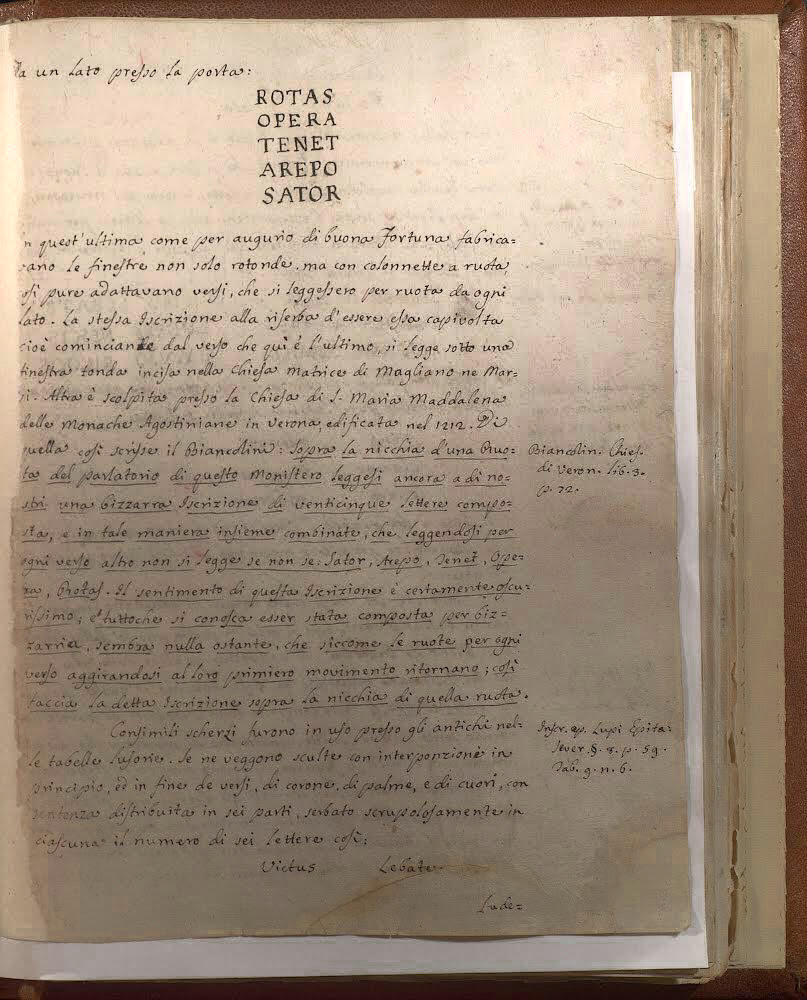 da un lato presso la porta:
ROTAS
OPERA
TENET
AREPO
SATOR
in quest'ultima come per augurio di buona Fortuna fabrica=
vano le finestre non solo rotonde. ma con colonnette a ruota,
così pure adattavano versi, che si leggessero per ruota da ogni
lato. La stessa Iscrizione alla riserba d'essere essa capivolta
cioè cominciante dal verso che qui è l'ultimo, si legge sotto una
finestra tonda incisa nella Chiesa Matrice di Magliano ne Mar=
si. Altra è scolpita presso la Chiesa di S. Maria Maddalena
delle Monache Agostiniane in Verona edificata nel 1212. Di
quella così scrisse il Biancolini: Sopra la nicchia d'una Ruo=
ta del parlatorio di questo Monistero leggesi ancora a dì no=
stri una bizzarra Iscrizione di venticinque lettere compo=
sta, e in tale maniera insieme combinate, che leggendosi per
ogni verso altro non si legge se non se: Sator, Arepo, Tenet, Ope=
ra, Rotas. Il sentimento di questa Iscrizione è certamente oscu=
rissimo; e tuttoche si conosca esser stata composta per biz=
zarria, sembra nulla ostante, che siccome le ruote per ogni
verso aggirandosi al loro primiero movimento ritornano; così
faccia la detta Iscrizione sopra la nicchia di quella ruota.
Biancolin. Chies.
di Veron. lib. 3.
p. 72.
Consimili scherzi furono in uso presso gli antichi nel=
le tabelle lusorie. Se ne veggono sculte con interponzione in
principio, ed in fine de versi, di corone, di palme, e di cuori, con
sentenza distribuita in sei parti, serbato scrupolosamente in
ciascuna il numero di sei lettere così:
Inscr. ap. Lupi Epita:
Sever. §. 8. p. 59.
Tab. 9. n. 6.
Victus Lebate
Lude=